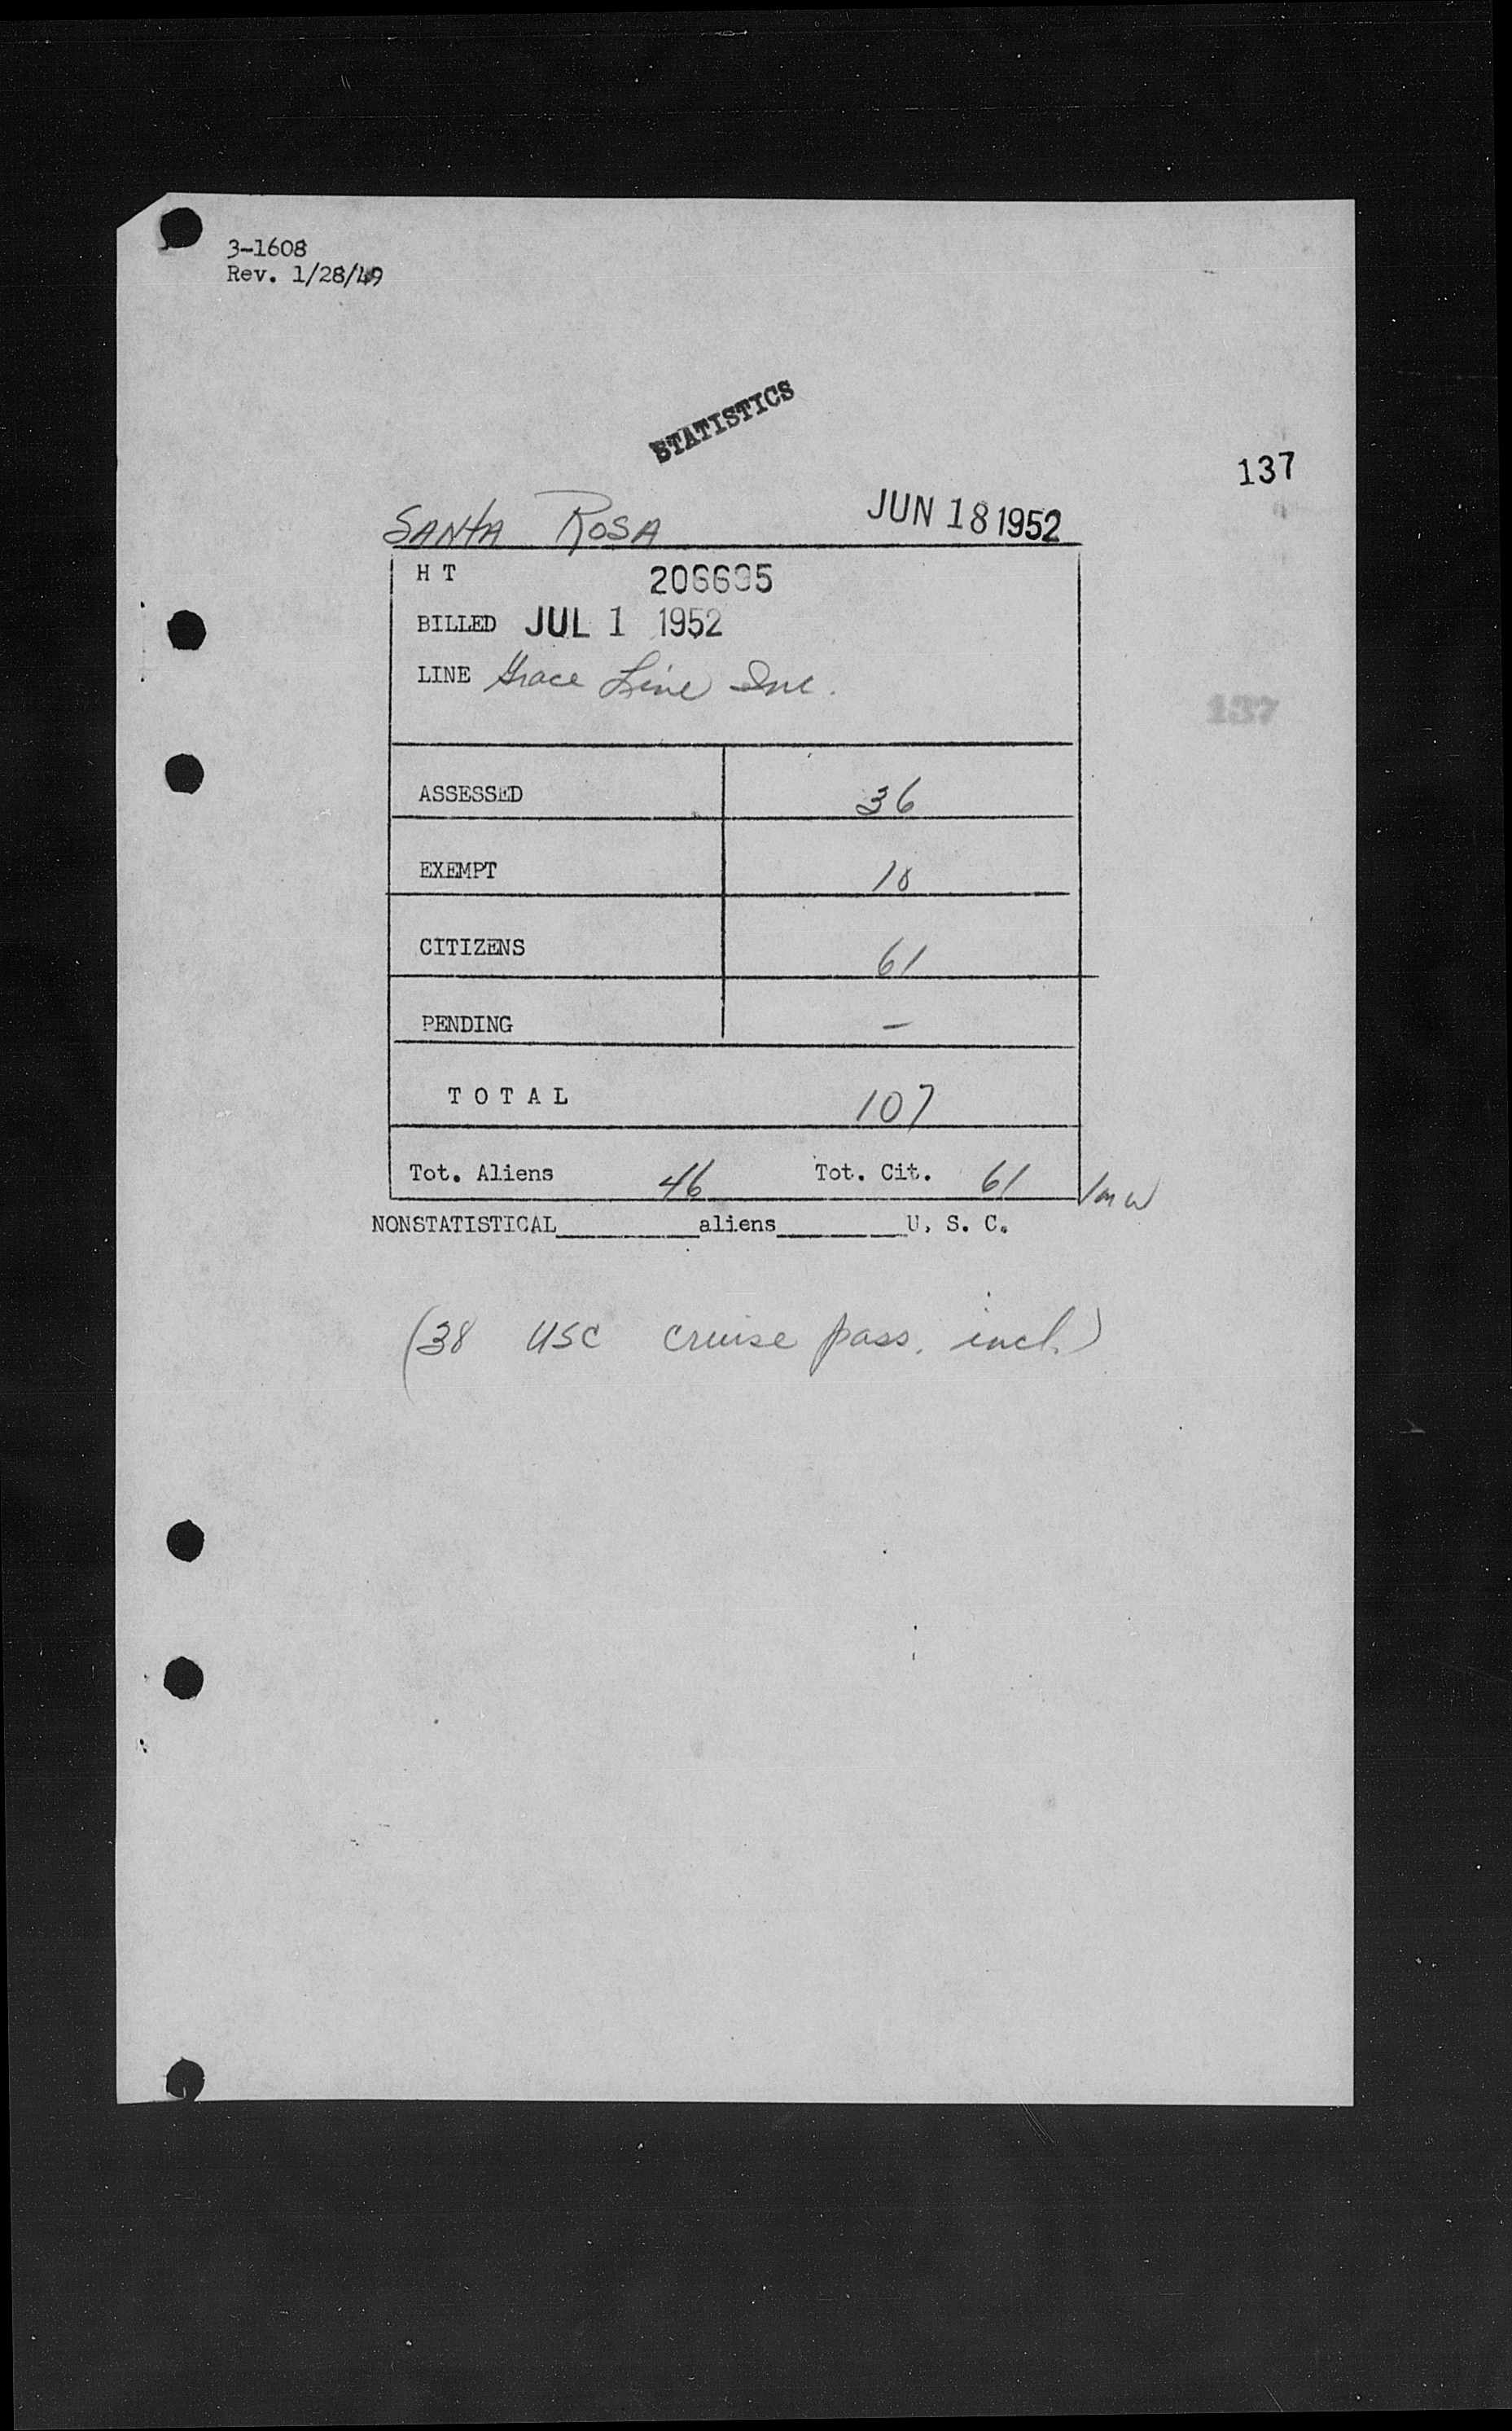 3-1608
Rev. 1/28/49
STATISTICS
137
SANTA ROSA JUN 18 1952
H T 206695
BILLED JUL 1 1952
LINE Grace Line Inc.
137
ASSESSED 36
EXEMPT 10
CITIZENS 61
PENDING –
TOTAL 107
Tot. Aliens 46 Tot. Cit. 61 /mw
NONSTATISTICAL________aliens________U. S. C.
(38 USC cruise pass. incl.)